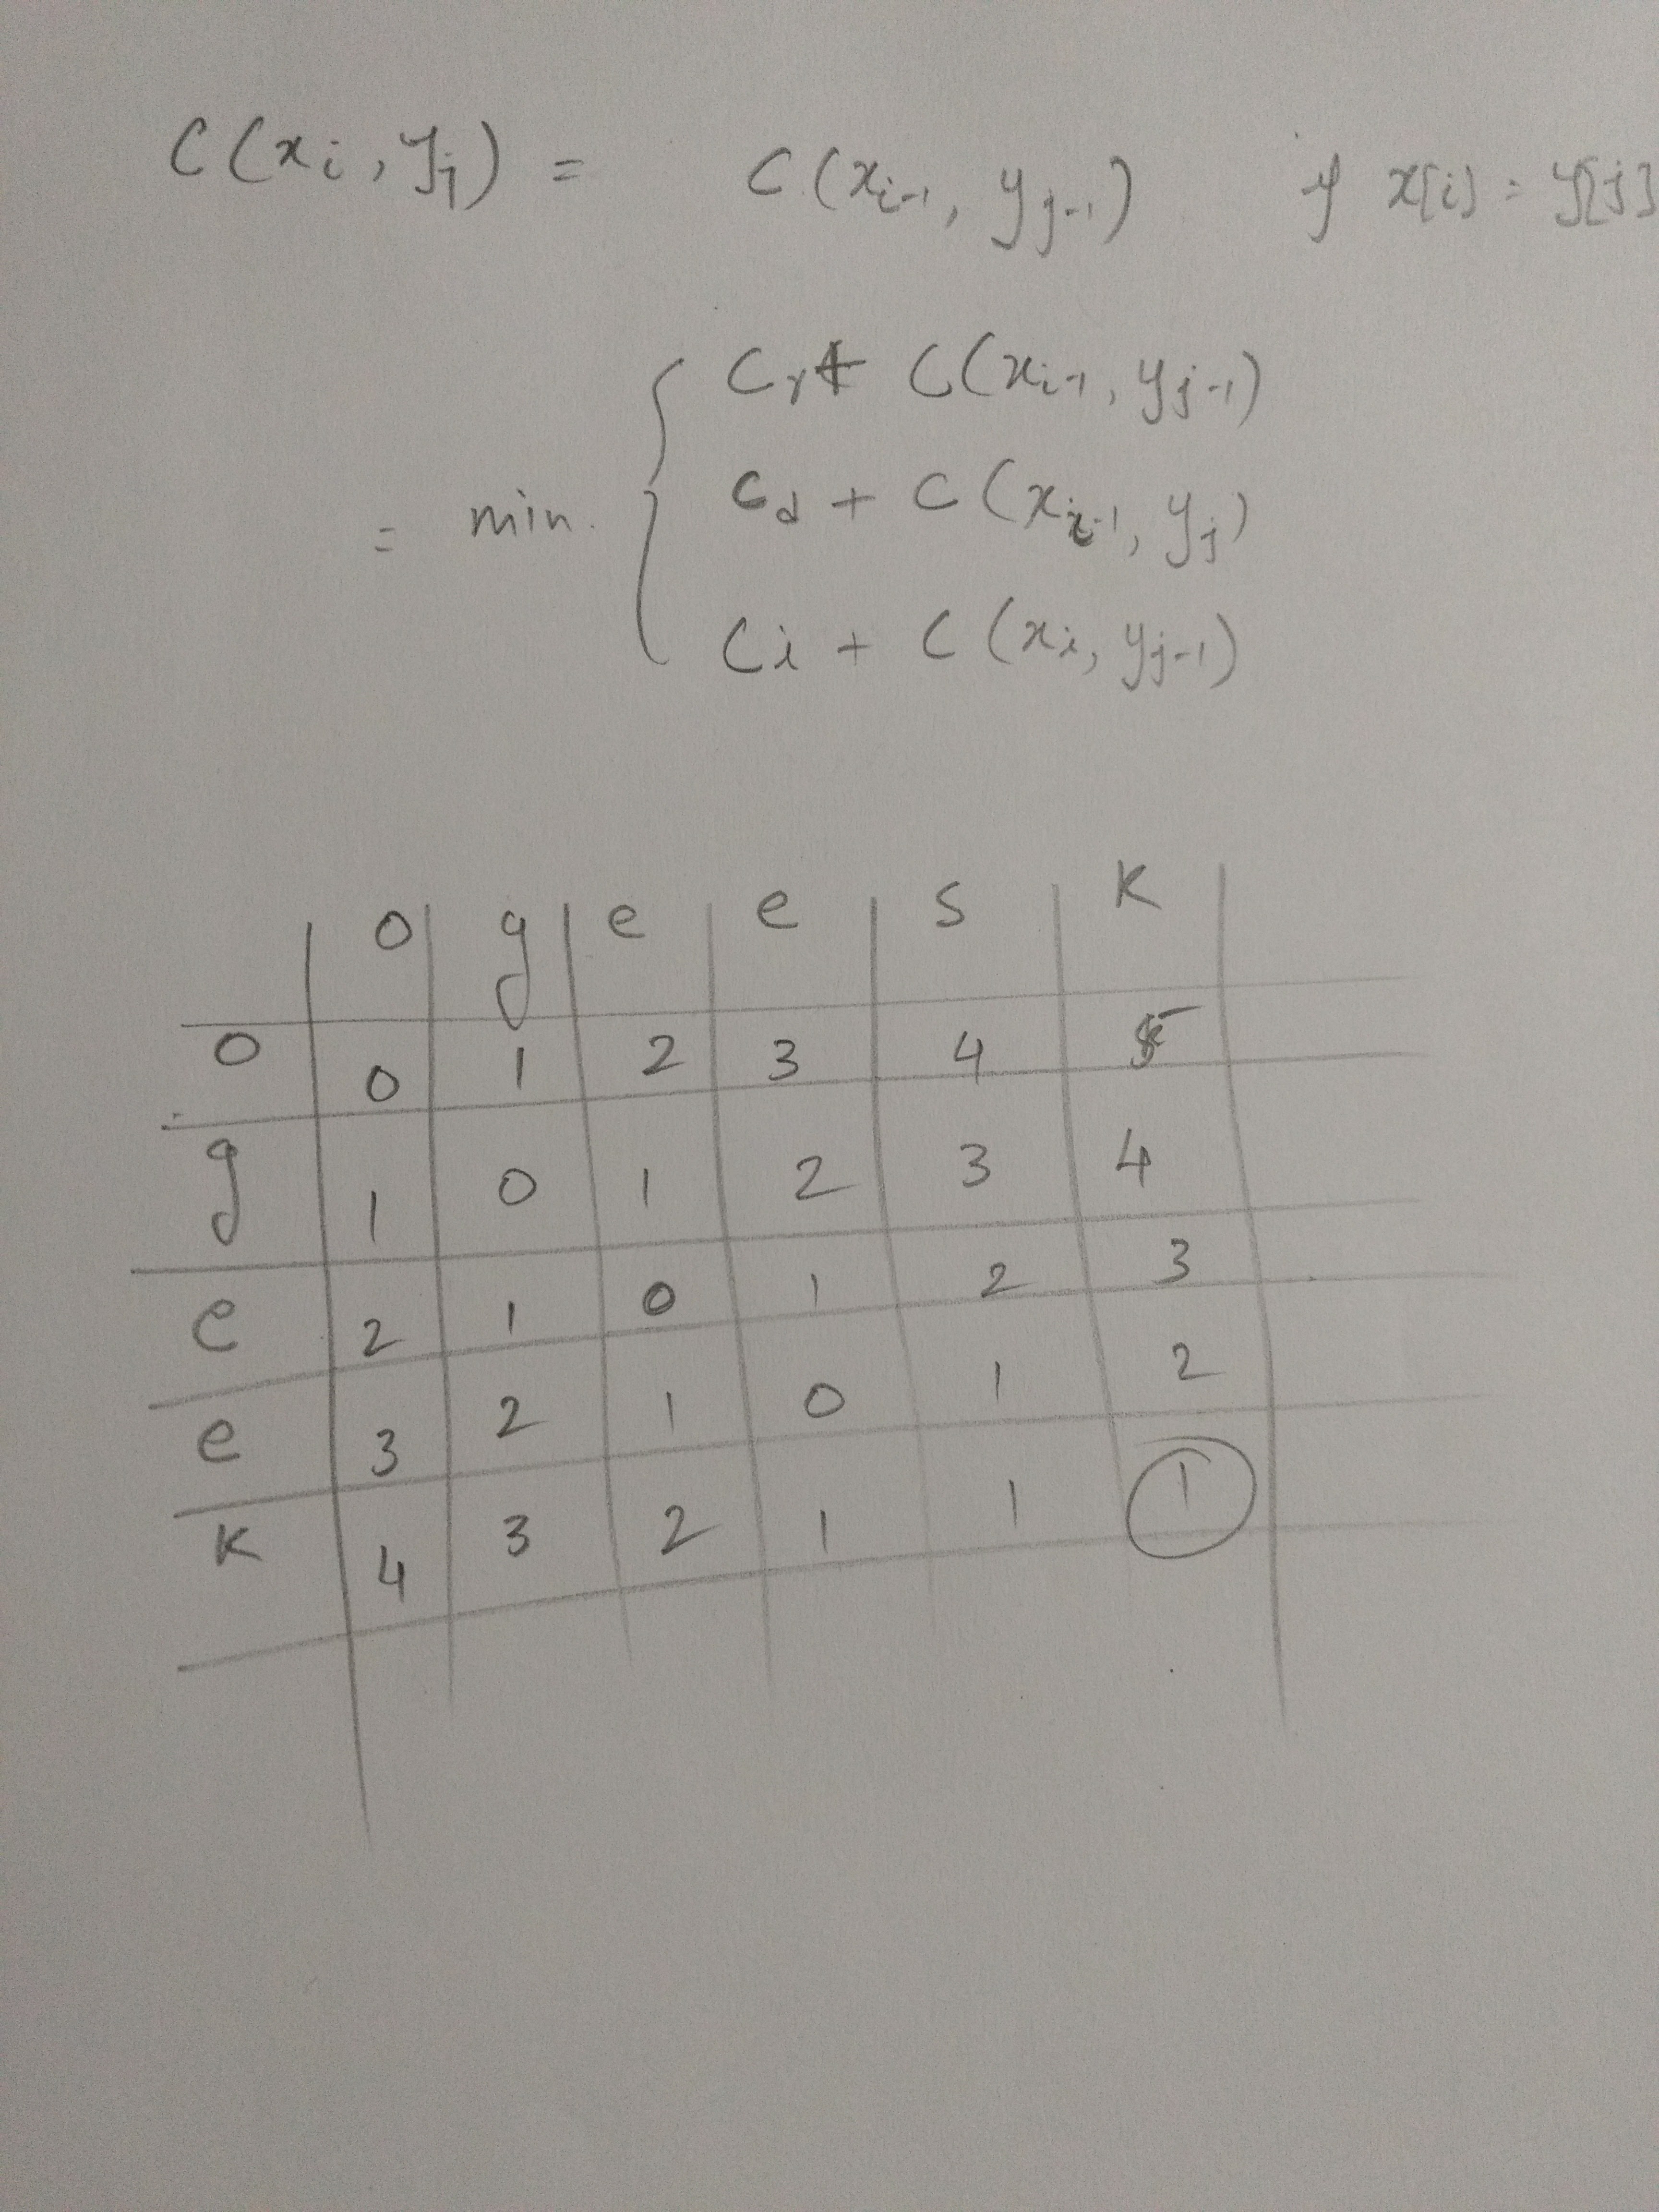 C(xi, yj) = C(xi-1, yj-1) if x[i] = y[j]
= min { Cr + C(xi-1, yj-1)
Cd + C(xi-1, yj)
Ci + C(xi, yj-1)
0 g e e s k
0 0 1 2 3 4 5
g 1 0 1 2 3 4
e 2 1 0 1 2 3
e 3 2 1 0 1 2
k 4 3 2 1 1 1